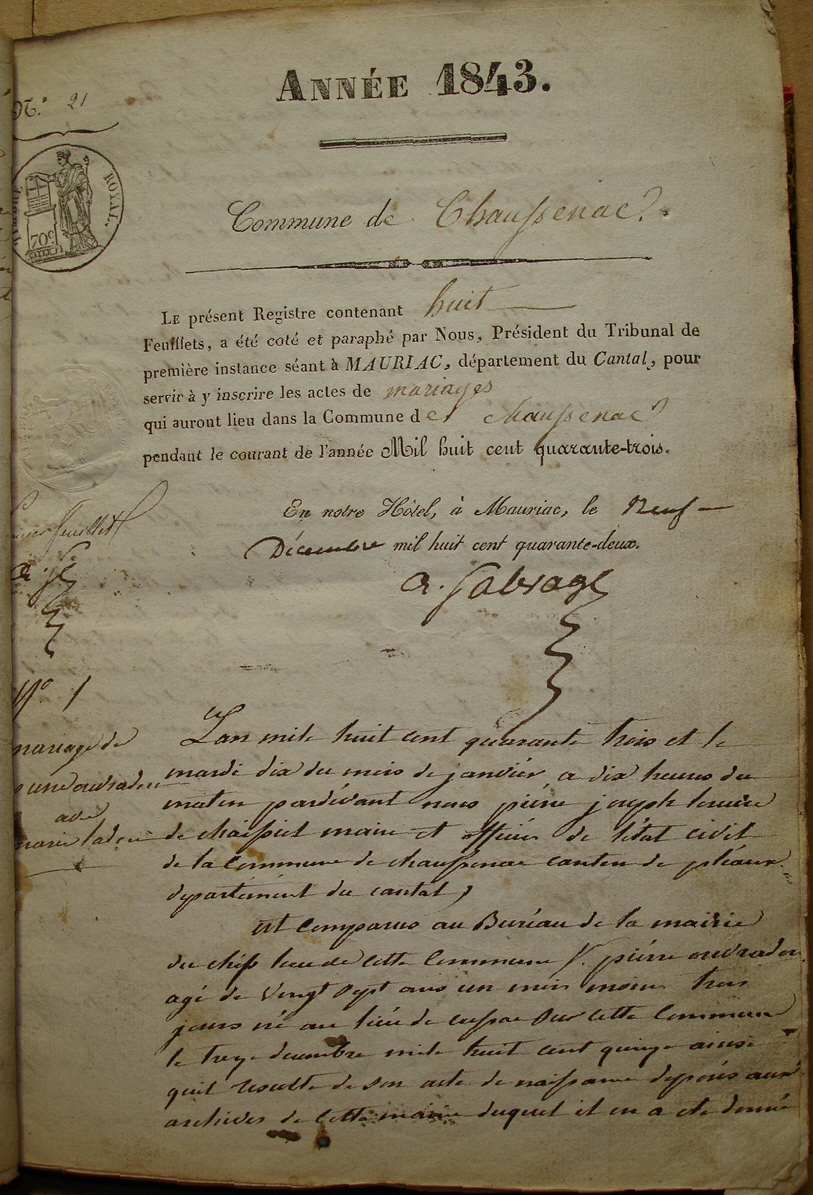 N.º 21
ANNÉE 1843.
ROYAL.
70c
Commune de Chaussenac
LE présent Registre contenant huit
Feuillets, a été coté et paraphé par Nous, Président du Tribunal de
première instance séant à MAURIAC, département du Cantal, pour
servir à y inscrire les actes de mariages
qui auront lieu dans la Commune de Chaussenac
pendant le courant de l'année Mil huit cent quarante-trois.
En notre Hôtel, à Mauriac, le Neuf
Décembre mil huit cent quarante-deux.
feuillet
Nº 1
mariage de
avec
marie
L'an mile huit cent quarante trois et le
mardi dix du mois de janvier a dix heures du
matin pardévant nous piérre joseph
de maire et officier de l'état civil
de la Commune de chaussenac canton de pléaux
département du cantal,
est comparus au Bureau de la mairie
du chef lieu de cette Commune Sr. piérre ouvradou
agé de Vingt sept ans un mois moins trois
jours né au lieu de cussac sur cette Commune
le treze decembre mile huit cent quinze ainsi
quil resulte de son acte de naissance déposés aux
archives de cette mairie duquel il en a été donné